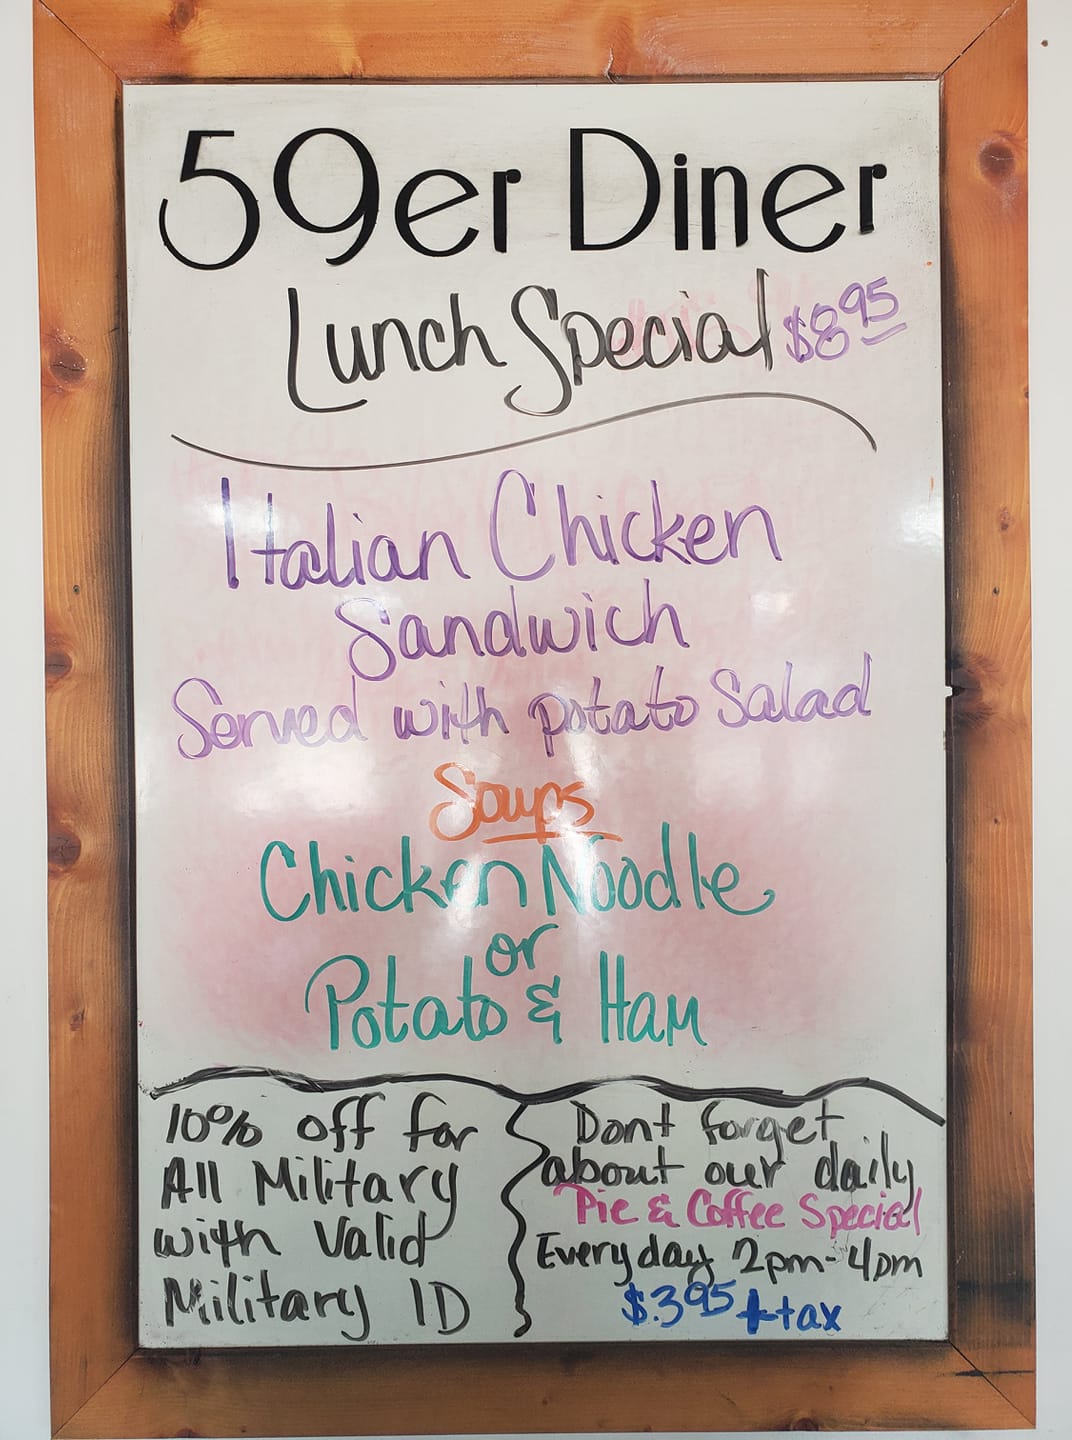 59er Diner
Lunch Special $8.95
Italian Chicken
Sandwich
Served with potato Salad
Soups
Chicken Noodle
or
Potato & Ham
10% off for
All Military
with Valid
Military ID
Dont forget
about our daily
Pie & Coffee Special
Everyday 2pm-4pm
$3.95 +tax